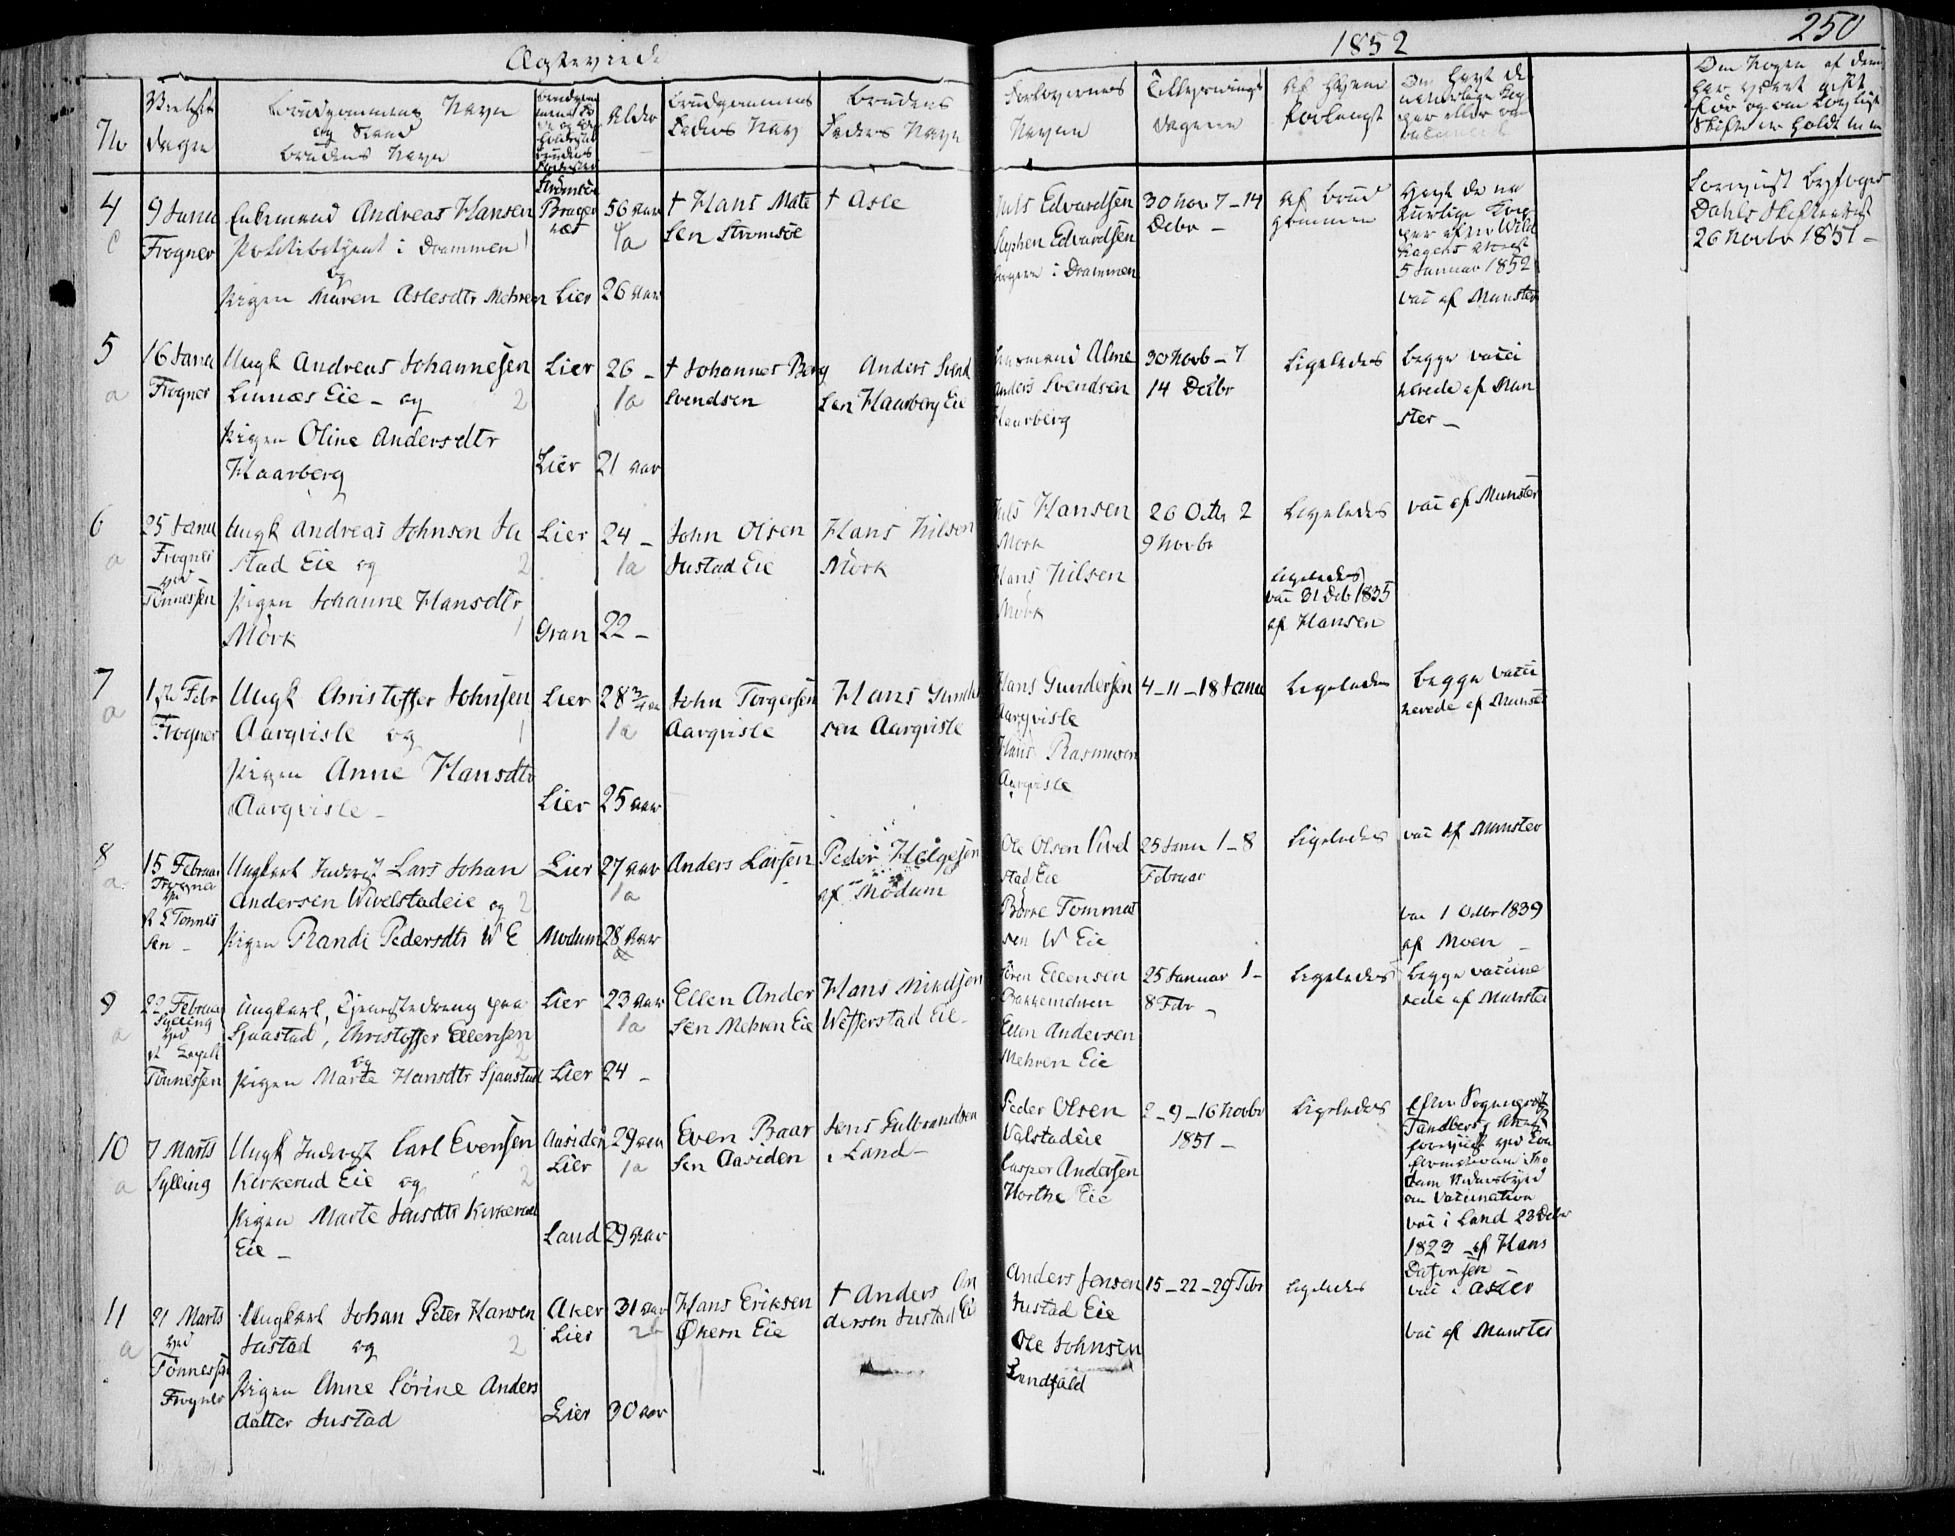 Ægteviede
1852
250
No
Vielses
dagen
Brudgommens Navn
og Stand
Brudens Navn
Alder
Brudgommens
Faders Navn
Brudens
Faders Navn
Forlovernes
Navne
Tillysnings
dagene
Af Hvem
forlangt
4
9 Janu
Frogner
Enkemand Andreas Hansen
Politibetjent i Drammen
og
Pigen Maren Aslesdtr Mehren
Strømsøe
Brager
næs
Lier
56 aar
1a
26 aar
† Hans Mate
sen Strømsøe
† Asle
Edvardsen
Edvardsen
Borgere i Drammen
30 Nov. 7 – 14
Debr –
af Brud
gommen
5 Januar 1852
vac af Munster
26 Novbr 1851 –
5
a
16 Janu
Frogner
Ungk Andreas Johannesen
Linnæs Eie – og
2
Pigen Oline Andersdtr
Haarberg
Lier
Lier
26 –
1a
21 aar
† Johannes Berg
Svendsen
Anders Svend
sen Haarberg Eie
Anders Svendsen
Haarberg
30 Novb – 7
14 Decbr
Ligeledes
begge vacci
nerede af Mun
ster –
6
a
25 Janu
Frogner
ved
Tønnessen
Ungk Andreas Johnsen Ju
stad Eie og
2
Pigen Johanne Hansdtr
Mørk
1
Lier
Gran
24 –
1a
22 –
John Olsen
Justad Eie
Hans Nilsen
Mørk
Nils Hansen
Mørk
Hans Nilsen
Mørk
26 Octbr 2
9 Novbr
Ligeledes
ligeledes
vac 31 Deb 1835
af Hansen
vac af Munster
7
a
1ste Febr
Frogner
Ungk Christoffer Johnsen
Aarqvisle og
1
Pigen Anne Hansdtr
Aarqvisle –
Lier
Lier
28 3/4 aar
1a
25 aar
John Torgersen
Aarqvisle
Hans Gunder
sen Aarqvisle
Hans Gundersen
Aarqvisle
Hans Rasmusen
Aarqvisle
4 – 11 – 18 Janu
Ligeledes
begge vacci
nerede af Munster
8
a
15 Februar
Frogner
Tønnes
sen –
Ungkarl Inderst Lars Johan
Andersen Wivelstadeie og
2
Pigen Randi Pedersdtr W E
Lier
Modum
27 aar
1a
28 aar
Anders Larsen
Peder Helgesen
af Modum
Ole Olsen Vivel
stad Eie
Børre Tommas
sen W Eie
25 Janu 1 – 8
Februar
Ligeledes
vac af Munster
vac 1 Octbr 1839
af Moen –
9
a
22 Februar
Sylling
ved
Tønnessen
Ungkarl, Tjenestedreng paa
Sjaastad, Christoffer Ellensen
2
og
Pigen Marte Hansdtr Sjaastad
Lier
Lier
23 aar
1a
24 –
Ellen Ander
sen Mehren Eie
Hans
Wefferstad Eie –
Søren Ellensen
Ellen Andersen
Mehren Eie
25 Januar 1 –
8 Febr –
Ligeledes
begge vaccine
rede af Munster
10
a
7 Marts
Sylling
Ungk Inderst Carl Evensen
Kirkerud Eie og
2
Pigen Marte Jensdtr Kirkerud
Eie –
Aasiden
Lier
Land
29 aar
1a
29 aar
Even Baar
sen Aasiden
Jens Gulbrandsen
i Land –
Peder Olsen
Valstadeie
Casper Andersen
Horthe Eie
2 – 9 – 16 Novbr
1851 –
Ligeledes
om Vaccination
vac i Land 23 Debr
1823 af Hans
11
a
21 Marts
ved
Tønnessen
Frogner
Ungkarl Johan Peter Hansen
Justad og
2
Pigen Anne Sørine Anders
datter Justad
Aker
Lier
Lier
31 aar
2b
30 aar
Hans Eriksen
Økern Eie
† Anders An
dersen Justad Eie
Anders Jensen
Justad Eie
Ole Johnsen
Landfald
15 – 22 – 29 Febr
ligeledes
vac i Asker
vac af Munster